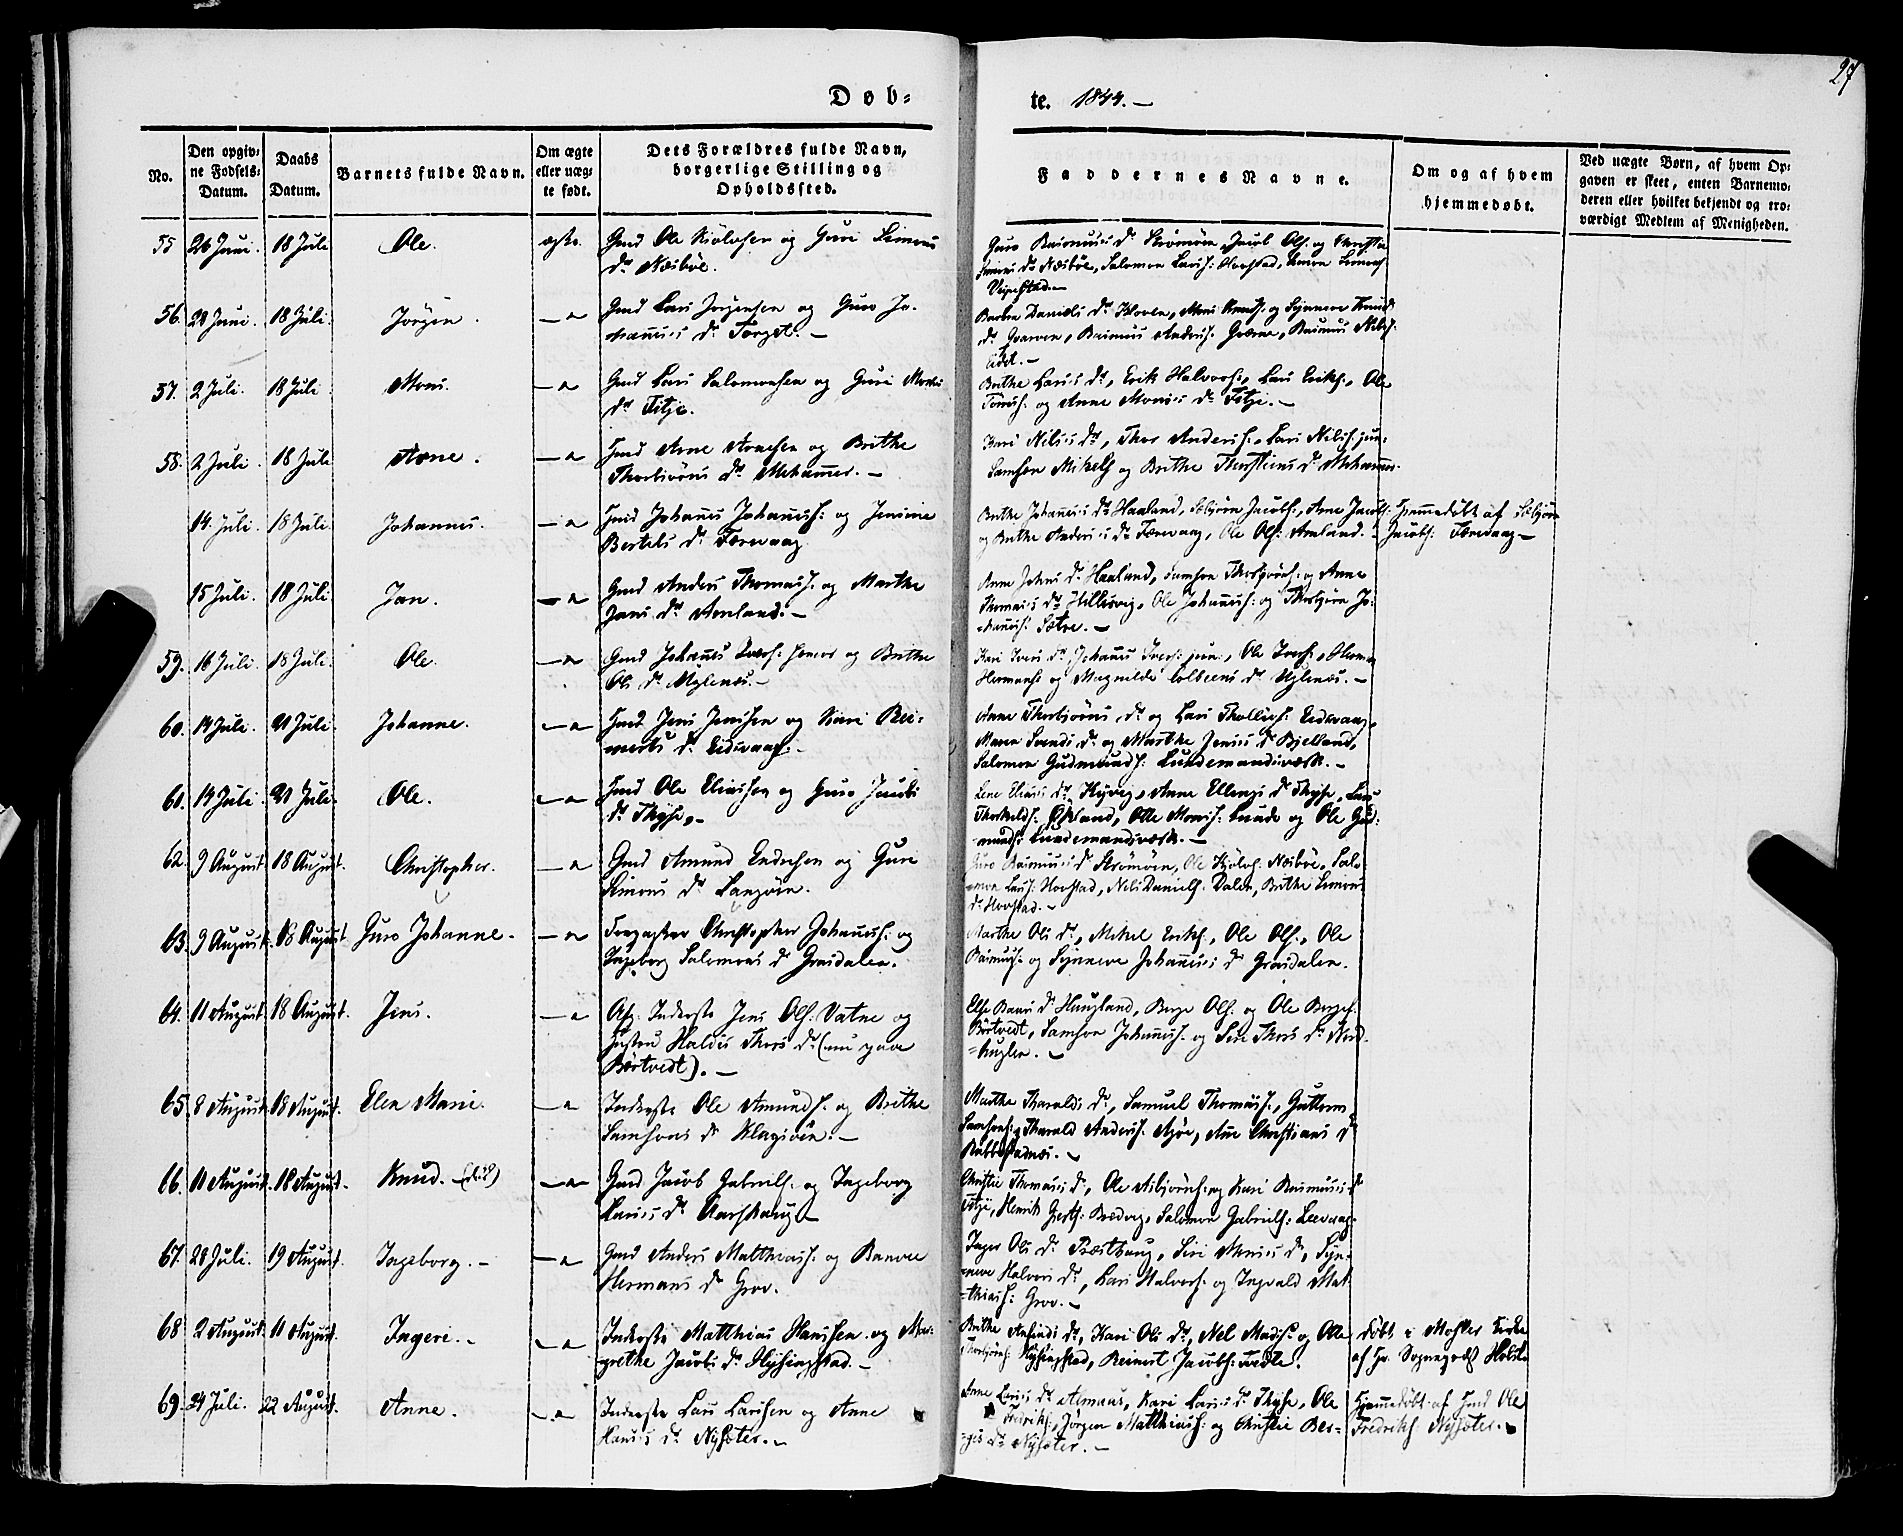 27
Døb-
te. 1844.-
No.
Den opgiv-
ne Fødsels-
Datum.
Daabs
Datum.
Barnets fulde Navn.
Om ægte
eller uæg-
te født.
Dets Forældres fulde Navn,
borgerlige Stilling og
Opholdssted.
Faddernes Navne.
Om og af hvem
hjemmedøbt.
Ved uægte Børn, af hvem Op-
gaven er skeet, enten Barnemo-
deren eller hvilket bekjendt og tro-
værdigt Medlem af Menigheden.
55 26 Juni 18 Juli Ole. ægte. Gmd Ole Kiölvsen og Guri Simons
Dr Næsböe.
Guro Rasmusis Dr Strömöen, Jacob Ols. og Christie
Simons Dr Næsböe, Salomon Larss: Hovstad, Simon Simons.
Vespestad.-
56. 28 Juni. 18 Juli. Jörgen. -"- Gmd Lars Jörgensen og Guro Jo-
hannis Dr Torget.-
Barbra Daniels Dr Hovin, Mons Knuds. og Synneve Knuds
Dr Gvarven, Rasmus Anders. Gværne, Rasmus Nils.
Lidt.-
57. 2 Juli. 18 Juli Mons. -"- Gmd Lars Salomonsen og Guri Mons
Dr Fitje.
Brithe Larsis Dr, Erik Halvors., Lars Eriks., Ole
Tönnis. og Anne Monsis Dr Fitje.-
58. 2 Juli. 18 Juli Arne. -"- Gmd Arne Arnesen og Brithe
Thorbiörns Dr Mehammer.-
Kari Nilsis Dr, Thor Anders., Lars Nils: jun:
Samson Mikels og Brithe Thorsteins Dr Mehammer.
14. Juli. 18 Juli Johannes. -"- Gmd Johannes Johannes: og Jensine
Bertels Dr Færevaag.
Brithe Johannis Dr Haaland, Sebjörn Jacobs:, Arne Jacobs:
og Brithe Andersis Dr Færevaag, Ole Ols: Amland.-
Hjemmedöbt af Sebjörn
Jacobs: Færevaag-
15 Juli. 18 Juli Jan. -"- Gmd Anders Thomas. og Marthe
Jans Dr Amland.-
Anne Johns Dr Haaland, Samson Thorbjörns: og Anne
Thomasis Dr Hillesvig, Ole Johannes: og Thorbjörn Jo-
=hannis: Sætre.-
59. 16 Juli. 18 Juli. Ole. -"- Gmd Johannes Ivers: senior og Brithe
Ols Dr Uglenæs.-
Kari Ivers Dr, Johannes Ivers: jun:, Ole Ivers:, Herman
Hermans: og Magnilde Colbeens Dr Uglenæs.-
60. 14 Juli. 21 Juli. Johanne. -"- Gmd Jens Jensen og Kari Rei-
nerts Dr Eidsvaag.-
Anne Thorbiörns Dr og Lars Thollefs: Eidsvaag,
Maren Svends Dr og Marthe Jensis Dr Bjelland,
Salomon Gudmunds: Lundemandsværk.-
61. 14 Juli. 21 Juli. Ole. -"- Gmd Ole Eliassen og Guro Jacobs
Dr Thyse.-
Lene Eliasis Dr Höyvig, Anne Ellings Dr Thyse, Lars
Thorkelds: Økland, Otte Monsis: Lunde og Ole Gud-
=munds: Lundemandsværk.-
62. 9 August 18 August. Christopher. -"- Gmd Amund Endresen og Guri
Simons Dr Langöen.
Guro Rasmusis Dr Strömöen, Ole Kjölvs: Næsböe, Salo-
=mon Lars: Hovstad, Nils Daniels: Dale, Brithe Simons
Dr Hovstad.-
63. 9 August. 18 August Guro Johanne. -"- Forpagter Christopher Johannes: og
Ingeborg Salomons Dr Grasdalen.
Marthe Ols Dr, Mikel Eriks., Ole Ols., Ole
Rasmus: og Synneve Johannis Dr Grasdalen.
64. 11 August. 18 August. Jens. -"- Afg: Inderste Jens Ols: Vatne og
Hustru Haldis Thors Dr (nu paa
Börtvedt).-
Else Baars Dr Haugland, Berge Ols. og Ole Berges.
Börtvedt, Samson Johannes. og Siri Thors Dr Nord
=huglen.-
65. 8 August. 18 August. Elen Marie. -"- Inderste Ole Amunds. og Brithe
Samsons Dr Klagsöen.-
Marthe Tharalds Dr, Samuel Thomas., Guttorm
Samsons: og Tharald Anders. Agöe, Ane Christians Dr
Rabbesnæs.-
66. 11 August. 18 August. Knud.- (död) -"- Gmd Jacob Gabriels. og Ingeborg
Larsis Dr Aarskaug.-
Christie Thomasis Dr, Ole Asbjörns: og Kari Rasmusis Dr
Fitje, Henrik Gjerts: Bredvig, Salomon Gabriels: Leevaag.
67. 28 Juli. 19 August. Ingeborg.- -"- Gmd Anders Matthias. og Ranvei
Hermans Dr Grov.
Inger Ols Dr Præsthaug, Siri Monsis Dr, Syn-
=neve Halvors Dr, Lars Halvors. og Ingvald Mat-
=thias: Grov.-
68 2 August. 11 August. Ingeri.- -"- Inderste Matthias Hansen og Mar-
grethe Jacobs Dr Hysingstad.-
Brithe Anfinds Dr, Kari Ols Dr, Nel Mads. og Otte
Thorbjörns: Hysingstad, Reinert Jacobs: Tvedte.
döbt i Moster Kirke
af Hr. Sognepræst Holst
69. 24 Juli. 22 August. Anne. -"- Inderste Lars Larsen og Anne
Hansis Dr Nysæter.-
Anne Larsis Dr Almaas, Kari Larsis Dr Thyse, Ole
Fredriks., Jörgen Matthias. og Christie Ber-
ges Dr Nysæter.-
Hjemmedöbt af Gmd Ole
Fredriks: Nysæter.-